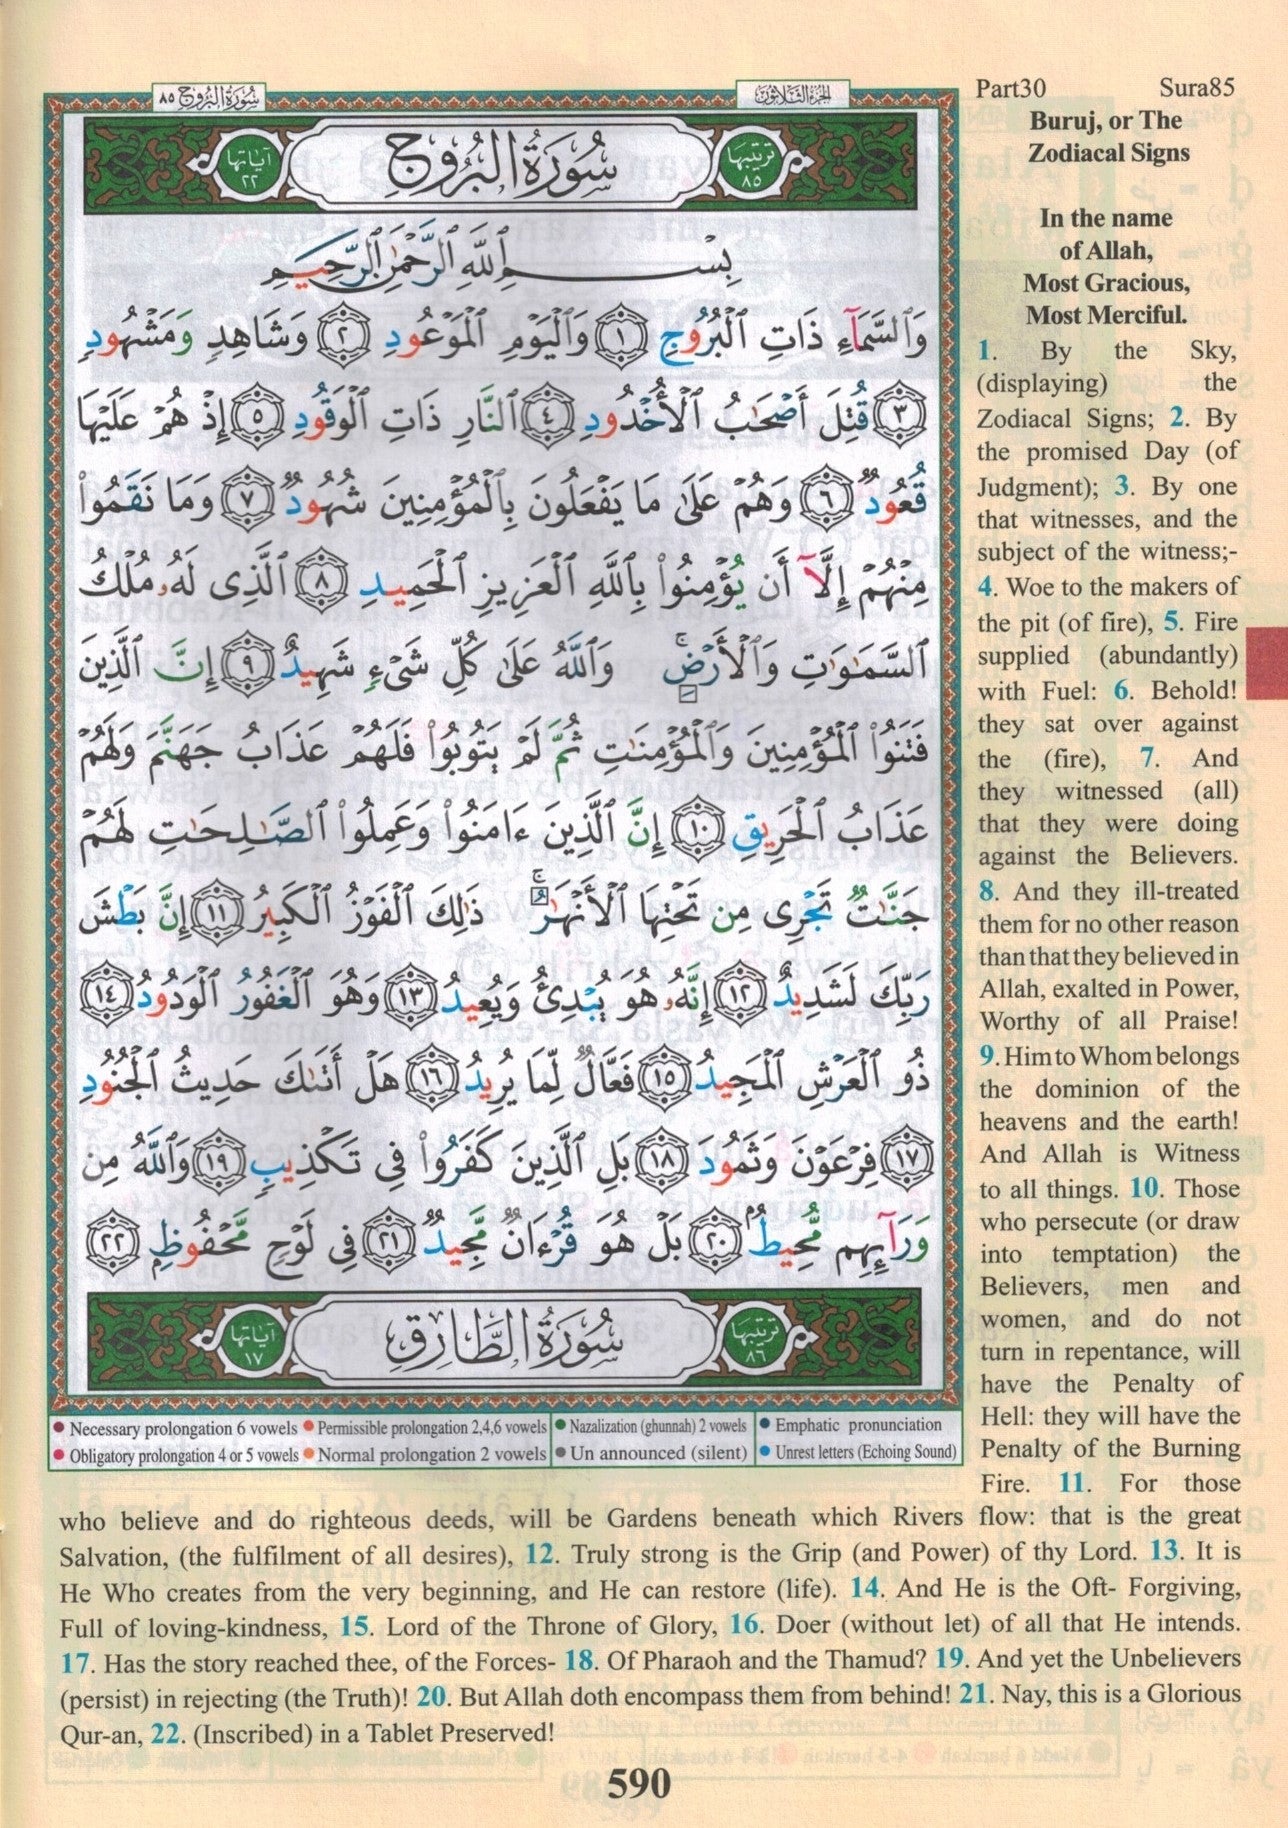 سورة البروج ٨٥
الجزء الثلاثون
Part30 Sura85
Buruj, or The
Zodiacal Signs
In the name
of Allah,
Most Gracious,
Most Merciful.
ترتيبها ٨٥
سُورَةُ البُرُوجِ
آياتها ٢٢
بِسْمِ ٱللَّهِ ٱلرَّحْمَٰنِ ٱلرَّحِيمِ
وَٱلسَّمَآءِ ذَاتِ ٱلْبُرُوجِ ١ وَٱلْيَوْمِ ٱلْمَوْعُودِ ٢ وَشَاهِدٍ وَمَشْهُودٍ
٣ قُتِلَ أَصْحَٰبُ ٱلْأُخْدُودِ ٤ ٱلنَّارِ ذَاتِ ٱلْوَقُودِ ٥ إِذْ هُمْ عَلَيْهَا
قُعُودٌ ٦ وَهُمْ عَلَىٰ مَا يَفْعَلُونَ بِٱلْمُؤْمِنِينَ شُهُودٌ ٧ وَمَا نَقَمُوا۟
مِنْهُمْ إِلَّآ أَن يُؤْمِنُوا۟ بِٱللَّهِ ٱلْعَزِيزِ ٱلْحَمِيدِ ٨ ٱلَّذِى لَهُۥ مُلْكُ
ٱلسَّمَٰوَٰتِ وَٱلْأَرْضِ ۚ وَٱللَّهُ عَلَىٰ كُلِّ شَىْءٍ شَهِيدٌ ٩ إِنَّ ٱلَّذِينَ
فَتَنُوا۟ ٱلْمُؤْمِنِينَ وَٱلْمُؤْمِنَٰتِ ثُمَّ لَمْ يَتُوبُوا۟ فَلَهُمْ عَذَابُ جَهَنَّمَ وَلَهُمْ
عَذَابُ ٱلْحَرِيقِ ١٠ إِنَّ ٱلَّذِينَ ءَامَنُوا۟ وَعَمِلُوا۟ ٱلصَّٰلِحَٰتِ لَهُمْ
جَنَّٰتٌ تَجْرِى مِن تَحْتِهَا ٱلْأَنْهَٰرُ ۚ ذَٰلِكَ ٱلْفَوْزُ ٱلْكَبِيرُ ١١ إِنَّ بَطْشَ
رَبِّكَ لَشَدِيدٌ ١٢ إِنَّهُۥ هُوَ يُبْدِئُ وَيُعِيدُ ١٣ وَهُوَ ٱلْغَفُورُ ٱلْوَدُودُ ١٤
ذُو ٱلْعَرْشِ ٱلْمَجِيدُ ١٥ فَعَّالٌ لِّمَا يُرِيدُ ١٦ هَلْ أَتَىٰكَ حَدِيثُ ٱلْجُنُودِ
١٧ فِرْعَوْنَ وَثَمُودَ ١٨ بَلِ ٱلَّذِينَ كَفَرُوا۟ فِى تَكْذِيبٍ ١٩ وَٱللَّهُ مِن
وَرَآئِهِم مُّحِيطٌۢ ٢٠ بَلْ هُوَ قُرْءَانٌ مَّجِيدٌ ٢١ فِى لَوْحٍ مَّحْفُوظٍۭ ٢٢
ترتيبها ٨٦
سُورَةُ الطَّارِقِ
آياتها ١٧
Necessary prolongation 6 vowels Permissible prolongation 2,4,6 vowels Nazalization (ghunnah) 2 vowels Emphatic pronunciation
Obligatory prolongation 4 or 5 vowels Normal prolongation 2 vowels Un announced (silent) Unrest letters (Echoing Sound)
1. By the Sky,
(displaying) the
Zodiacal Signs; 2. By
the promised Day (of
Judgment); 3. By one
that witnesses, and the
subject of the witness;-
4. Woe to the makers of
the pit (of fire), 5. Fire
supplied (abundantly)
with Fuel: 6. Behold!
they sat over against
the (fire), 7. And
they witnessed (all)
that they were doing
against the Believers.
8. And they ill-treated
them for no other reason
than that they believed in
Allah, exalted in Power,
Worthy of all Praise!
9. Him to Whom belongs
the dominion of the
heavens and the earth!
And Allah is Witness
to all things. 10. Those
who persecute (or draw
into temptation) the
Believers, men and
women, and do not
turn in repentance, will
have the Penalty of
Hell: they will have the
Penalty of the Burning
Fire. 11. For those
who believe and do righteous deeds, will be Gardens beneath which Rivers flow: that is the great
Salvation, (the fulfilment of all desires), 12. Truly strong is the Grip (and Power) of thy Lord. 13. It is
He Who creates from the very beginning, and He can restore (life). 14. And He is the Oft- Forgiving,
Full of loving-kindness, 15. Lord of the Throne of Glory, 16. Doer (without let) of all that He intends.
17. Has the story reached thee, of the Forces- 18. Of Pharaoh and the Thamud? 19. And yet the Unbelievers
(persist) in rejecting (the Truth)! 20. But Allah doth encompass them from behind! 21. Nay, this is a Glorious
Qur-an, 22. (Inscribed) in a Tablet Preserved!
590